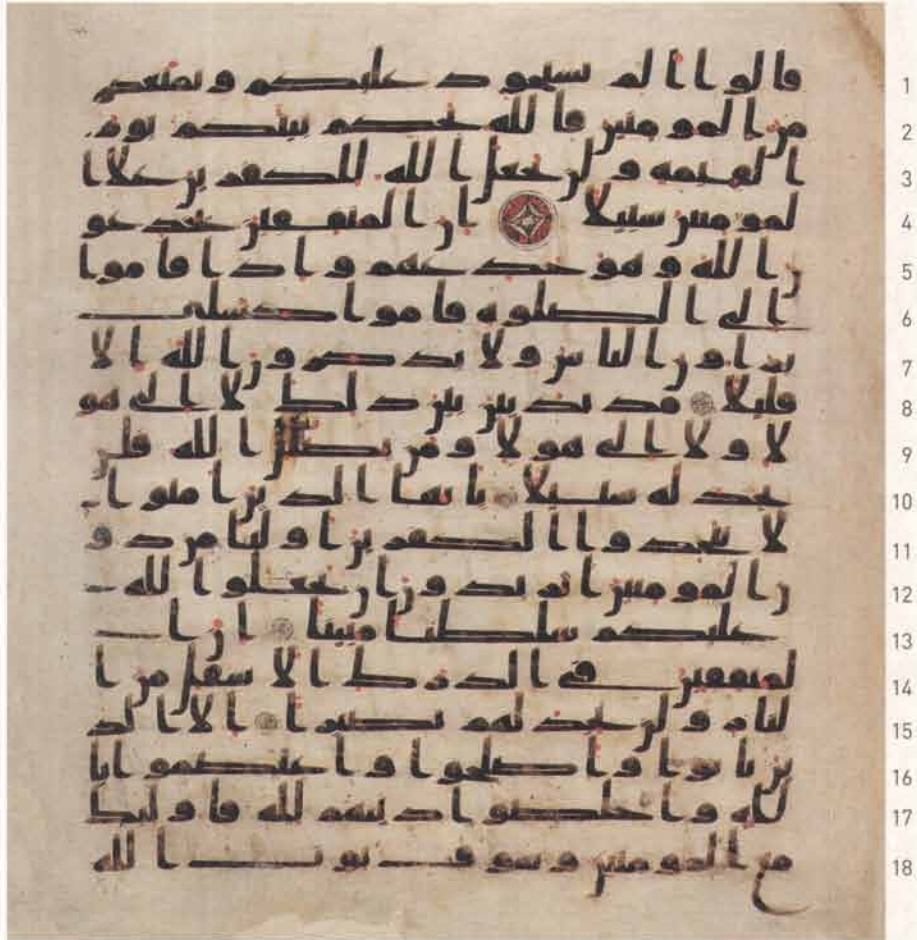 1 قالوا الم نستحوذ عليكم ونمنعكم
2 من المومنين فالله يحكم بينكم يوم
3 القيمه ولن يجعل الله للكفرين علا ا
4 لمومنين سبيلا ان المنفقين يخدعو
5 ن الله وهو خدعهم واذا قاموا
6 الى الصلوه قاموا كسلى
7 يراون الناس ولا يذكرون الله الا
8 قليلا مذبذبين بين ذلك لا الى هو
9 لا ولا الى هولا ومن يضلل الله فلن
10 تجد له سبيلا يايها الذين امنوا
11 لا تتخذوا الكفرين اوليا من دو
12 ن المومنين اتريدون ان تجعلوا لله
13 عليكم سلطنا مبينا ان ا
14 لمنفقين في الدرك الاسفل من ا
15 لنار ولن تجد لهم نصيرا الا الذ
16 ين تابوا واصلحوا واعتصموا با
17 لله واخلصوا دينهم لله فاوليك
18 مع المومنين وسوف يوت الله